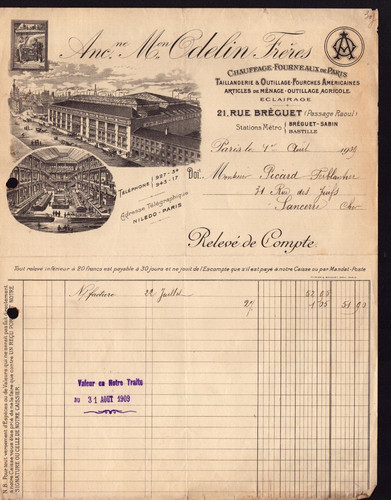 Anc.ne M.on Odelin Frères
CHAUFFAGE-FOURNEAUX DE PARIS
TAILLANDERIE & OUTILLAGE-FOURCHES AMÉRICAINES
ARTICLES DE MÉNAGE-OUTILLAGE AGRICOLE.
ECLAIRAGE
21, RUE BRÉGUET (Passage Raoul)
Stations Métro { BRÉGUET-SABIN
BASTILLE
TÉLÉPHONE { 927-34
943-17
Adresse Télégraphique
HILEDO-PARIS
Paris le 1er Août 1909
Doit Monsieur Picard Ferblantier
31 Rue des Juifs
Sancerre Cher
Relevé de Compte
Tout relevé inférieur à 20 francs est payable à 30 jours et ne jouit de l'Escompte que s'il est payé à notre Caisse ou par Mandat-Poste
N/ facture 22 Juillet 52 95
2% 1 05 51 90
Valeur en Notre Traite
au 31 AOUT 1909
N.B. Pour tout versement d'Espèces ou de Valeurs qui ne serait pas fait directement
à notre Caisse vous êtes prié de ne la faire que contre UN REÇU PORTANT NOTRE
SIGNATURE OU CELLE DE NOTRE CAISSIER.